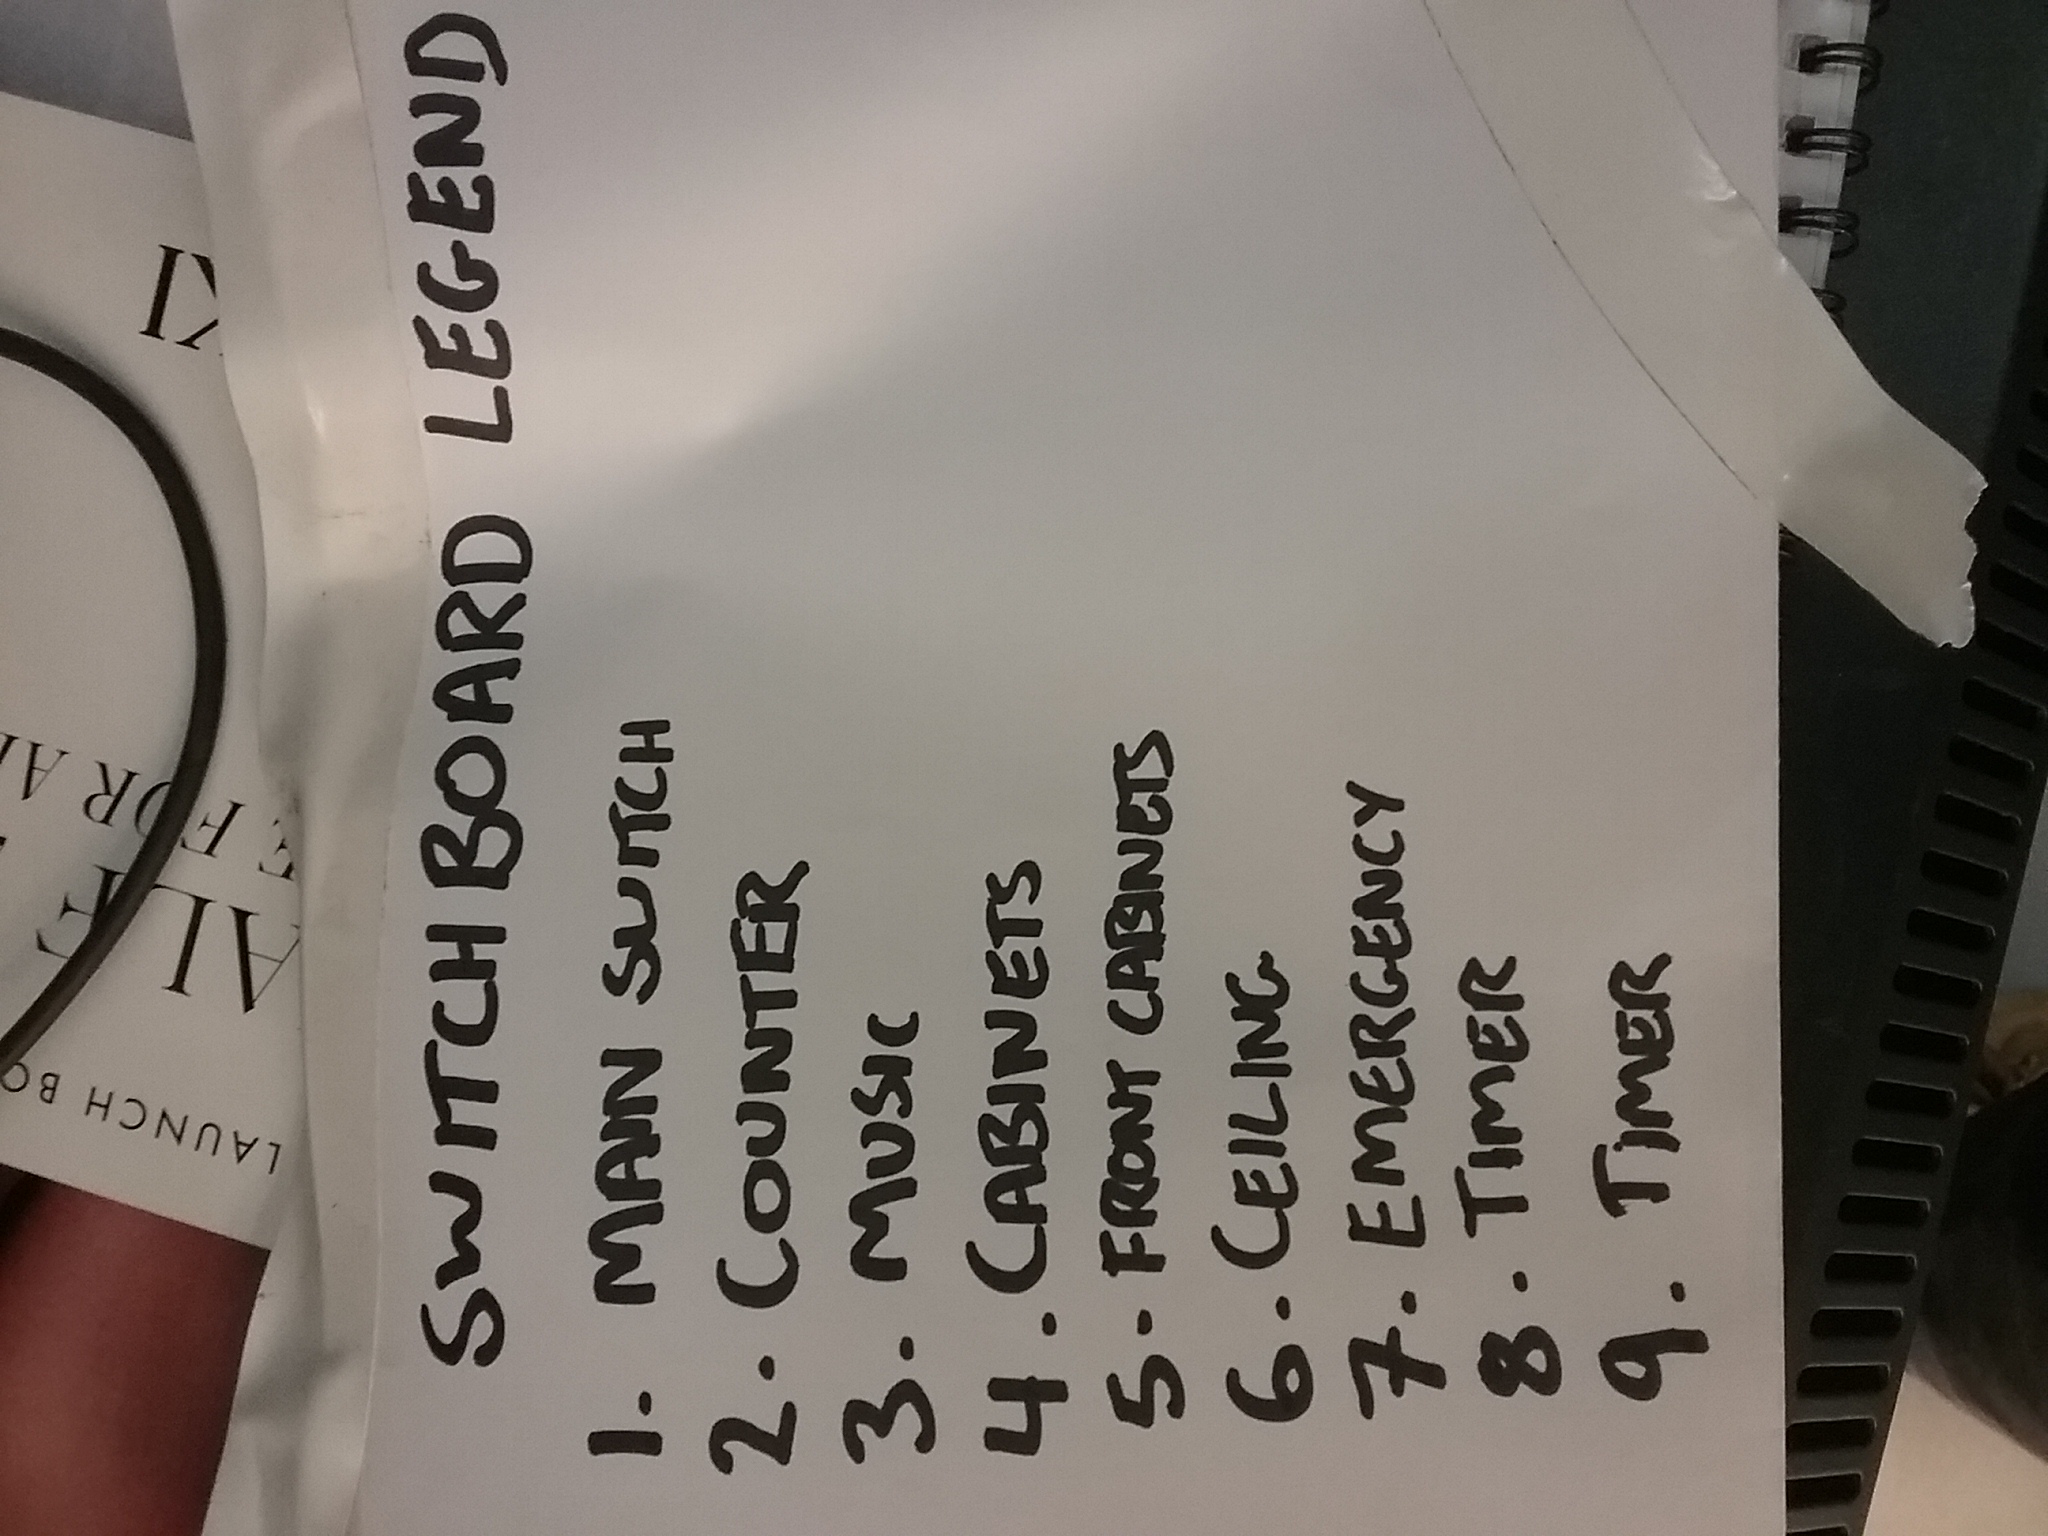 SWITCHBOARD LEGEND
1. MAIN SWITCH
2. COUNTER
3. MUSIC
4. CABINETS
5. FRONT CABINETS
6. CEILING
7. EMERGENCY
8. TIMER
9. TIMER
LAUNCH